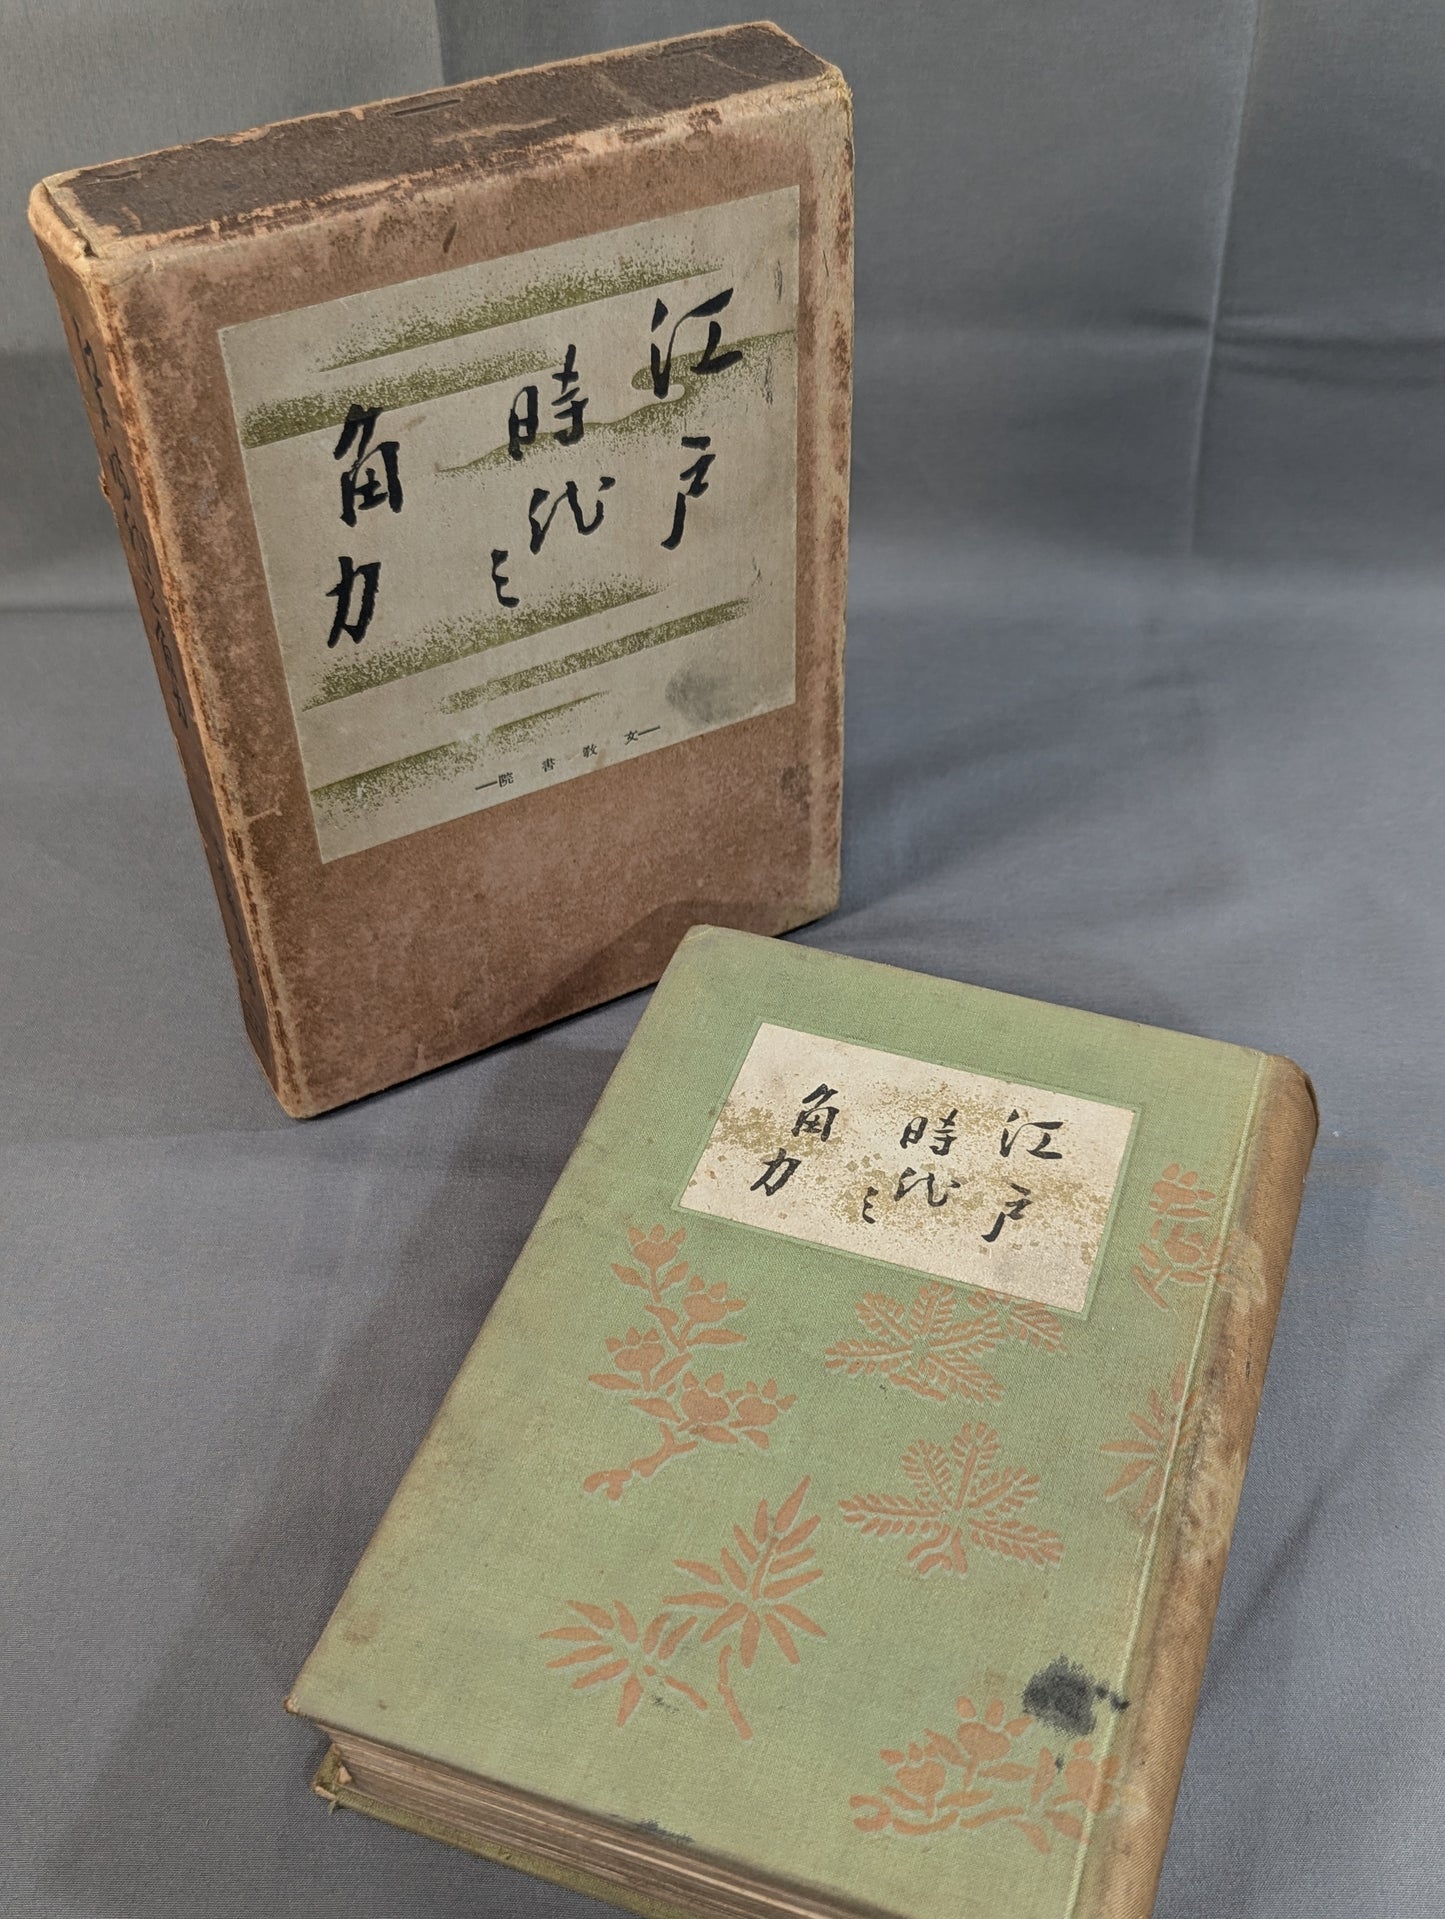 江戸
時代之
角力
文敎書院
江戸
時代之
角力